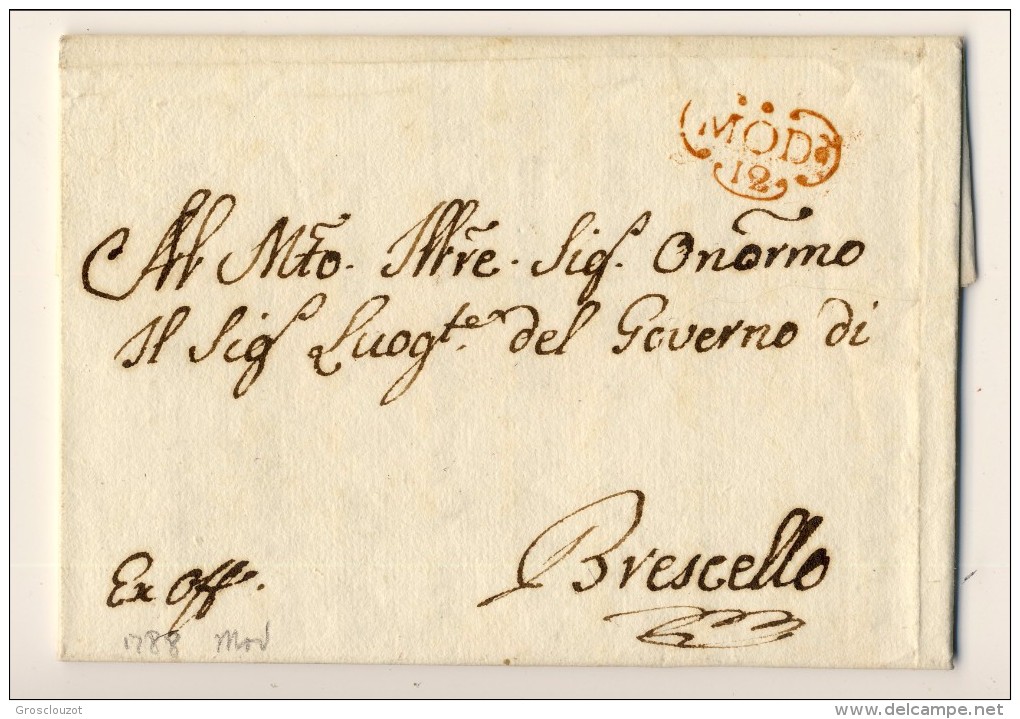 MOD
12
Al Mto. Illre. Sig. Onormo
Il Sig Luogte. del Governo di
Brescello
Ex Off.
1788 Mod
Grosclouzot
delcampe.net